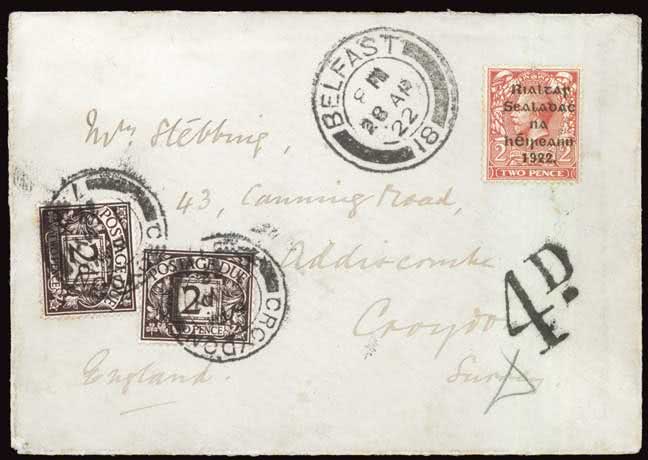 BELFAST
8 PM
28 AP
22
18
Rialtaſ
Sealadaċ
na
hÉireann
1922.
2 2
TWO PENCE
Mr Stebbing,
43, Canning Road,
Addiscombe
Croydon
Surrey
England.
4D.
POSTAGE DUE
2d
POSTAGE DUE
2d
TWO PENCE
CROYDON